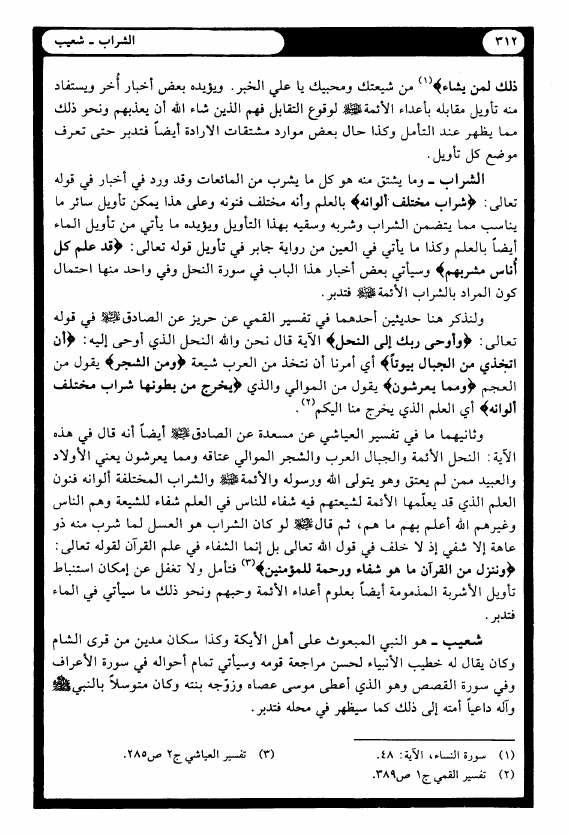 ٣١٢
الشراب ـ شعيب
ذلك لمن يشاء﴾(١) من شيعتك ومحبيك يا علي الخبر. ويؤيده بعض أخبار أُخر ويستفاد
منه تأويل مقابله بأعداء الأئمة ﷺ لوقوع التقابل فهم الذين شاء الله أن يعذبهم ونحو ذلك
مما يظهر عند التأمل وكذا حال بعض موارد مشتقات الارادة أيضاً فتدبر حتى تعرف
موضع كل تأويل.
الشراب ـ وما يشتق منه هو كل ما يشرب من المائعات وقد ورد في أخبار في قوله
تعالى: ﴿شراب مختلف ألوانه﴾ بالعلم وأنه مختلف فنونه وعلى هذا يمكن تأويل سائر ما
يناسب مما يتضمن الشراب وشربه وسقيه بهذا التأويل ويؤيده ما يأتي من تأويل الماء
أيضاً بالعلم وكذا ما يأتي في العين من رواية جابر في تأويل قوله تعالى: ﴿قد علم كل
أُناس مشربهم﴾ وسيأتي بعض أخبار هذا الباب في سورة النحل وفي واحد منها احتمال
كون المراد بالشراب الأئمة ﷺ فتدبر.
ولنذكر هنا حديثين أحدهما في تفسير القمي عن حريز عن الصادق ﷺ في قوله
تعالى: ﴿وأوحى ربك إلى النحل﴾ الآية قال نحن والله النحل الذي أوحى إليه: ﴿أن
اتخذي من الجبال بيوتاً﴾ أي أمرنا أن نتخذ من العرب شيعة ﴿ومن الشجر﴾ يقول من
العجم ﴿ومما يعرشون﴾ يقول من الموالي والذي ﴿يخرج من بطونها شراب مختلف
ألوانه﴾ أي العلم الذي يخرج منا اليكم(٢).
وثانيهما ما في تفسير العياشي عن مسعدة عن الصادق ﷺ أيضاً أنه قال في هذه
الآية: النحل الأئمة والجبال العرب والشجر الموالي عتاقه ومما يعرشون يعني الأولاد
والعبيد ممن لم يعتق وهو يتولى الله ورسوله والأئمة ﷺ والشراب المختلفة ألوانه فنون
العلم الذي قد يعلّمها الأئمة لشيعتهم فيه شفاء للناس في العلم شفاء للشيعة وهم الناس
وغيرهم الله أعلم بهم ما هم، ثم قال ﷺ لو كان الشراب هو العسل لما شرب منه ذو
عاهة إلا شفي إذ لا خلف في قول الله تعالى بل إنما الشفاء في علم القرآن لقوله تعالى:
﴿وننزل من القرآن ما هو شفاء ورحمة للمؤمنين﴾(٣) فتأمل ولا تغفل عن إمكان استنباط
تأويل الأشربة المذمومة أيضاً بعلوم أعداء الأئمة وحبهم ونحو ذلك ما سيأتي في الماء
فتدبر.
شعيب ـ هو النبي المبعوث على أهل الأيكة وكذا سكان مدين من قرى الشام
وكان يقال له خطيب الأنبياء لحسن مراجعة قومه وسيأتي تمام أحواله في سورة الأعراف
وفي سورة القصص وهو الذي أعطى موسى عصاه وزوّجه بنته وكان متوسلاً بالنبي ﷺ
وآله داعياً أمته إلى ذلك كما سيظهر في محله فتدبر.
(١) سورة النساء، الآية: ٤٨.
(٢) تفسير القمي ج١ ص٣٨٩.
(٣) تفسير العياشي ج٢ ص٢٨٥.